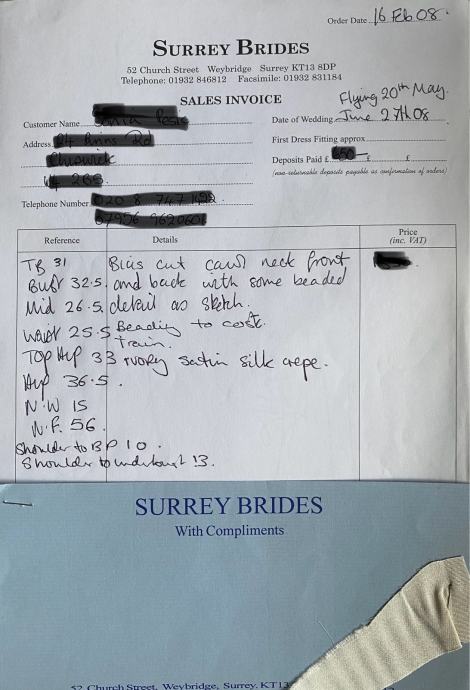 Order Date 16 Feb 08.
SURREY BRIDES
52 Church Street Weybridge Surrey KT13 8DP
Telephone: 01932 846812 Facsimile: 01932 831184
SALES INVOICE
Flying 20th May.
Customer Name
Date of Wedding June 27th 08
Address
First Dress Fitting approx
Deposits Paid £ £ £
(non-returnable deposits payable as confirmation of orders)
Telephone Number
Reference Details Price (inc. VAT)
TB 31 Bias cut cowl neck front
Bust 32.5 and back with some beaded
Mid 26.5 detail as sketch.
waist 25.5 Beading to cost.
train.
Top Hip 33 ivory satin silk crepe.
Hip 36.5.
N.W 15
N.F. 56.
Shoulder to BP 10.
Shoulder to underbust 13.
SURREY BRIDES
With Compliments
52 Church Street, Weybridge, Surrey. KT13